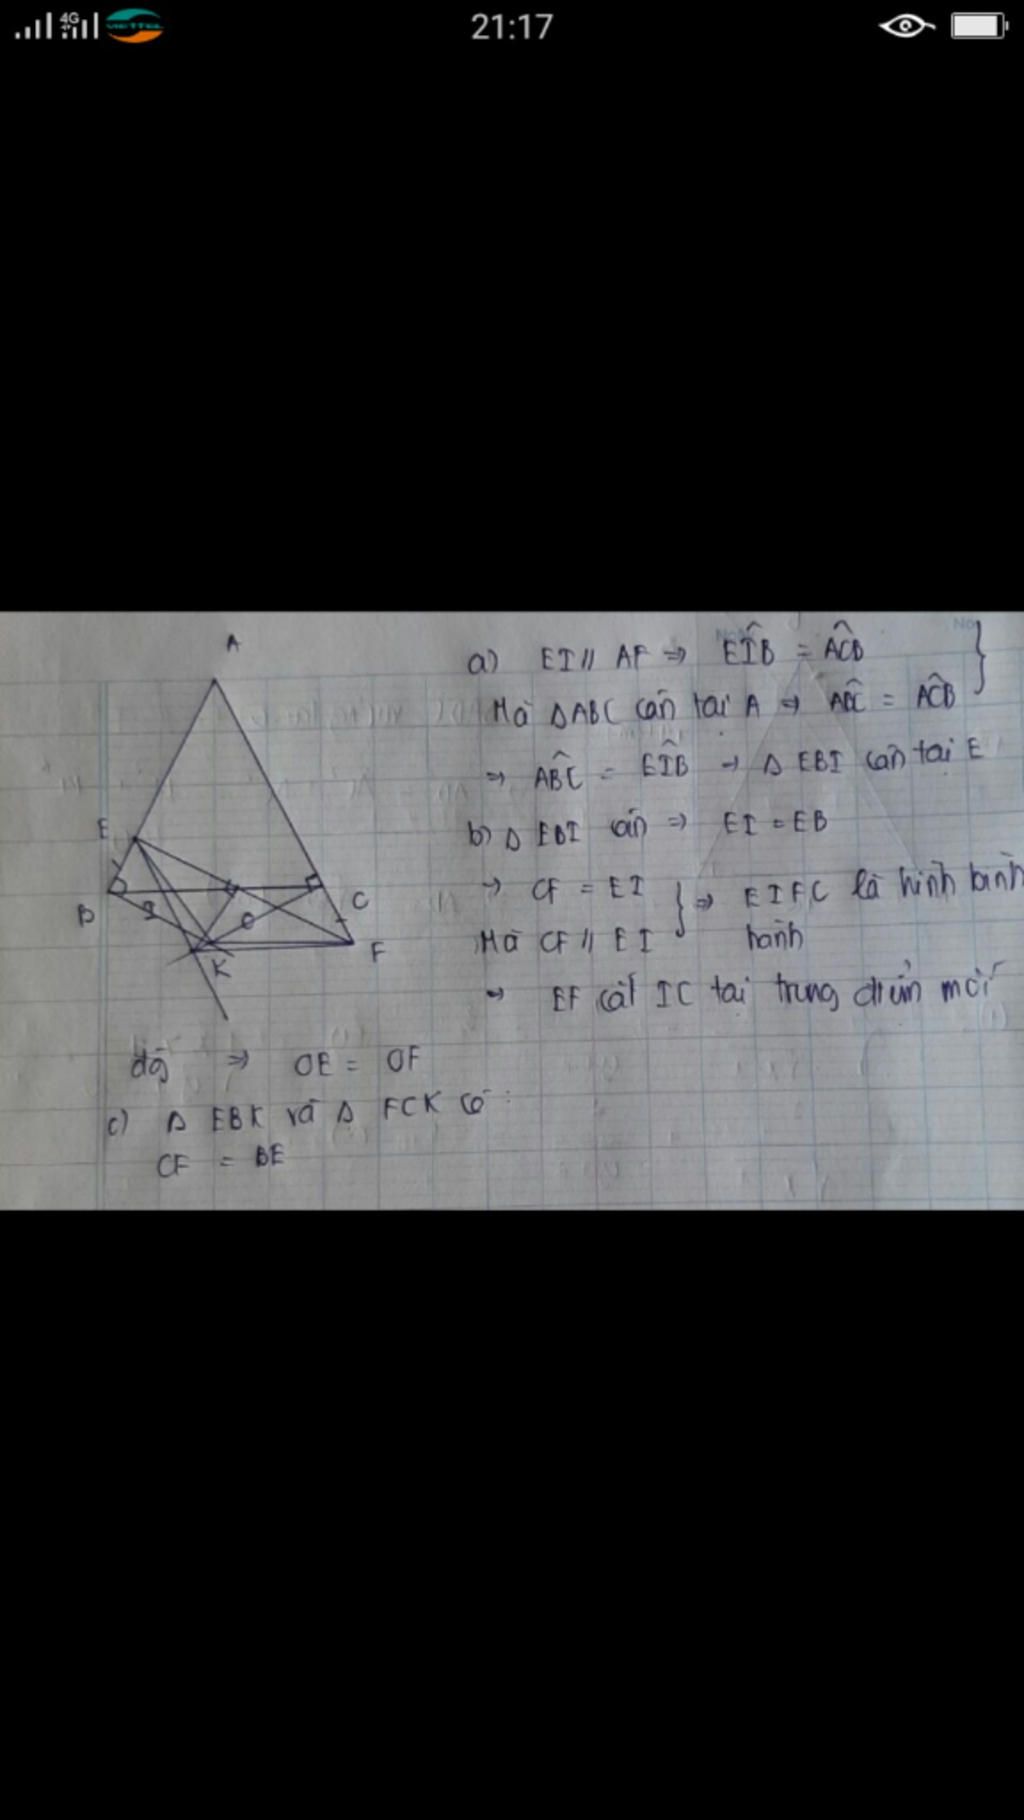 4G
VIETTEL
21:17
No
A
E
B
I
O
C
K
F
a) EI // AF => EÎB = AĈB
Mà ΔABC cân tại A => AB̂C = AĈB
=> AB̂C = EÎB -> Δ EBI cân tại E
b) Δ EBI cân => EI = EB
-> CF = EI } => EIFC là hình bình
Mà CF // EI hành
=> EF cắt IC tại trung điểm mỗi
đg => OE = OF
c) Δ EBK và Δ FCK có :
CF = BE